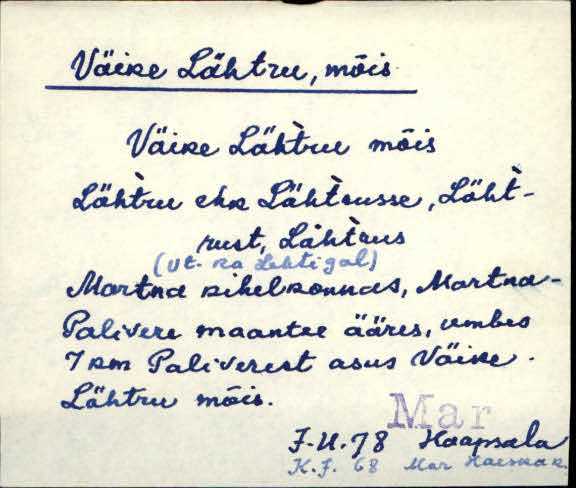 Väike Lähtru, mõis
Väike Läht̀ru mõis
Läht̀ru ehk Läht̀usse, Läht̀-
rust, Läht̀rus
(vt. ka Lehtigal)
Martna kihelkonnas, Martna-
Palivere maantee ääres, umbes
7 km Paliverest asus Väike-
Lähtru mõis.
Mar
J.U. 78 Haapsalu
K.J. 68 Mar